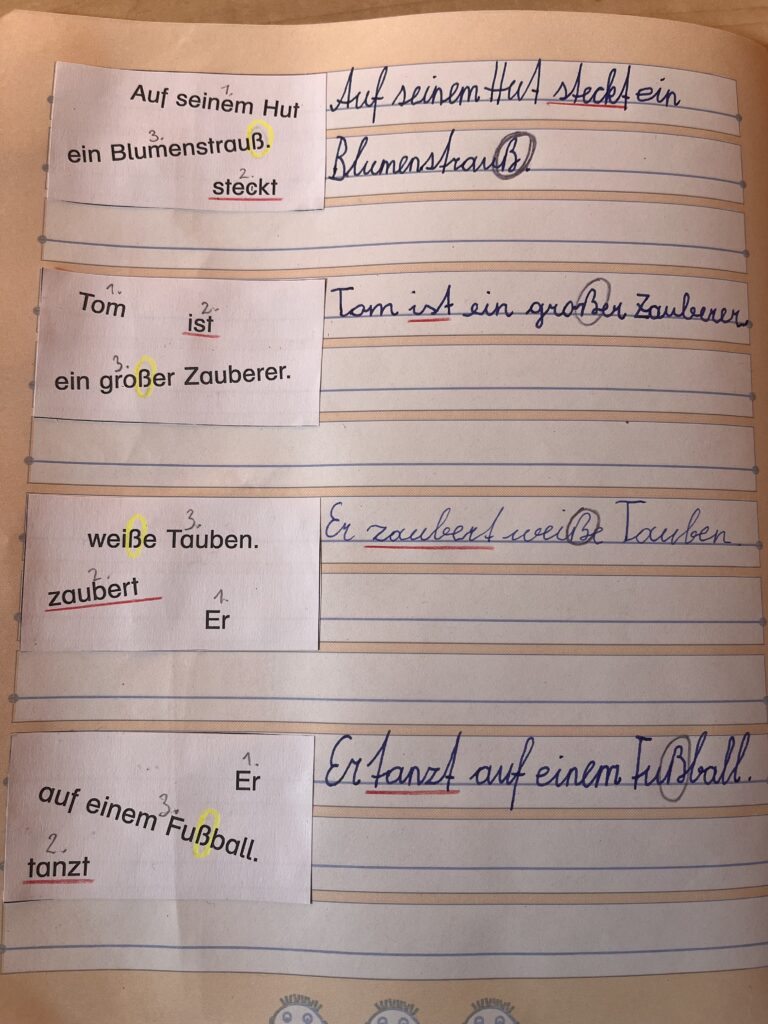 1.
Auf seinem Hut
3.
ein Blumenstrauß.
2.
steckt
Auf seinem Hut steckt ein
Blumenstrauß.
1.
Tom
2.
ist
3.
ein großer Zauberer.
Tom ist ein großer Zauberer.
3.
weiße Tauben.
2.
zaubert
1.
Er
Er zaubert weiße Tauben.
1.
Er
3.
auf einem Fußball.
2.
tanzt
Er tanzt auf einem Fußball.